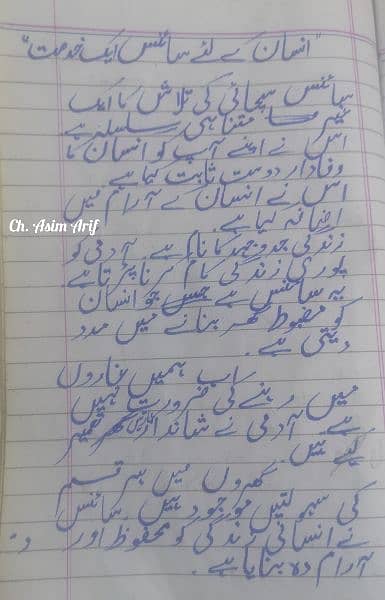 "انسان کے لئے سائنس ایک خدمت"
سائنس سچائی کی تلاش کا ایک
غیر متناہی سلسلہ ہے
اس نے اپنے آپ کو انسان کا
وفادار دوست ثابت کیا ہے۔
اس نے انسان کے آرام میں
اضافہ کیا ہے۔
Ch. Asim Arif
زندگی جدوجہد کا نام ہے۔ آدمی کو
پوری زندگی کام کرنا پڑتا ہے
یہ سائنس ہے جو انسان
کو مضبوط گھر بنانے میں مدد
دیتی ہے۔
اب ہمیں غاروں
میں رہنے کی ضرورت نہیں
ہے۔ آدمی نے شاندار گھر تعمیر
کیے ہیں۔
گھروں میں ہر قسم
کی سہولتیں موجود ہیں۔ سائنس
نے انسانی زندگی کو محفوظ اور
آرام دہ بنایا ہے۔